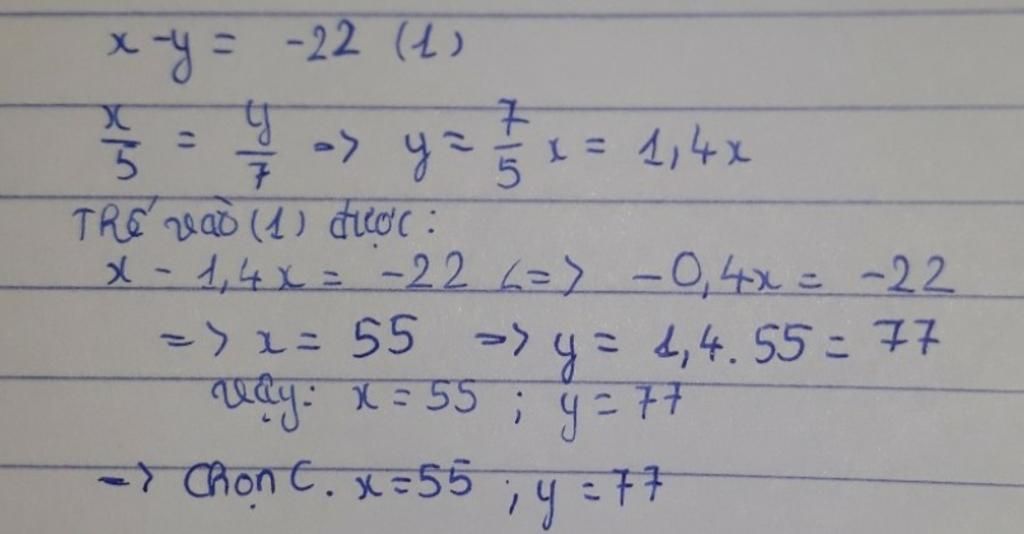 x - y = -22 (1)
x/5 = y/7 => y = 7/5 x = 1,4x
Thế vào (1) được:
x - 1,4x = -22 <=> -0,4x = -22
=> x = 55 => y = 1,4.55 = 77
Vậy: x = 55 ; y = 77
-> Chọn C. x = 55 ; y = 77